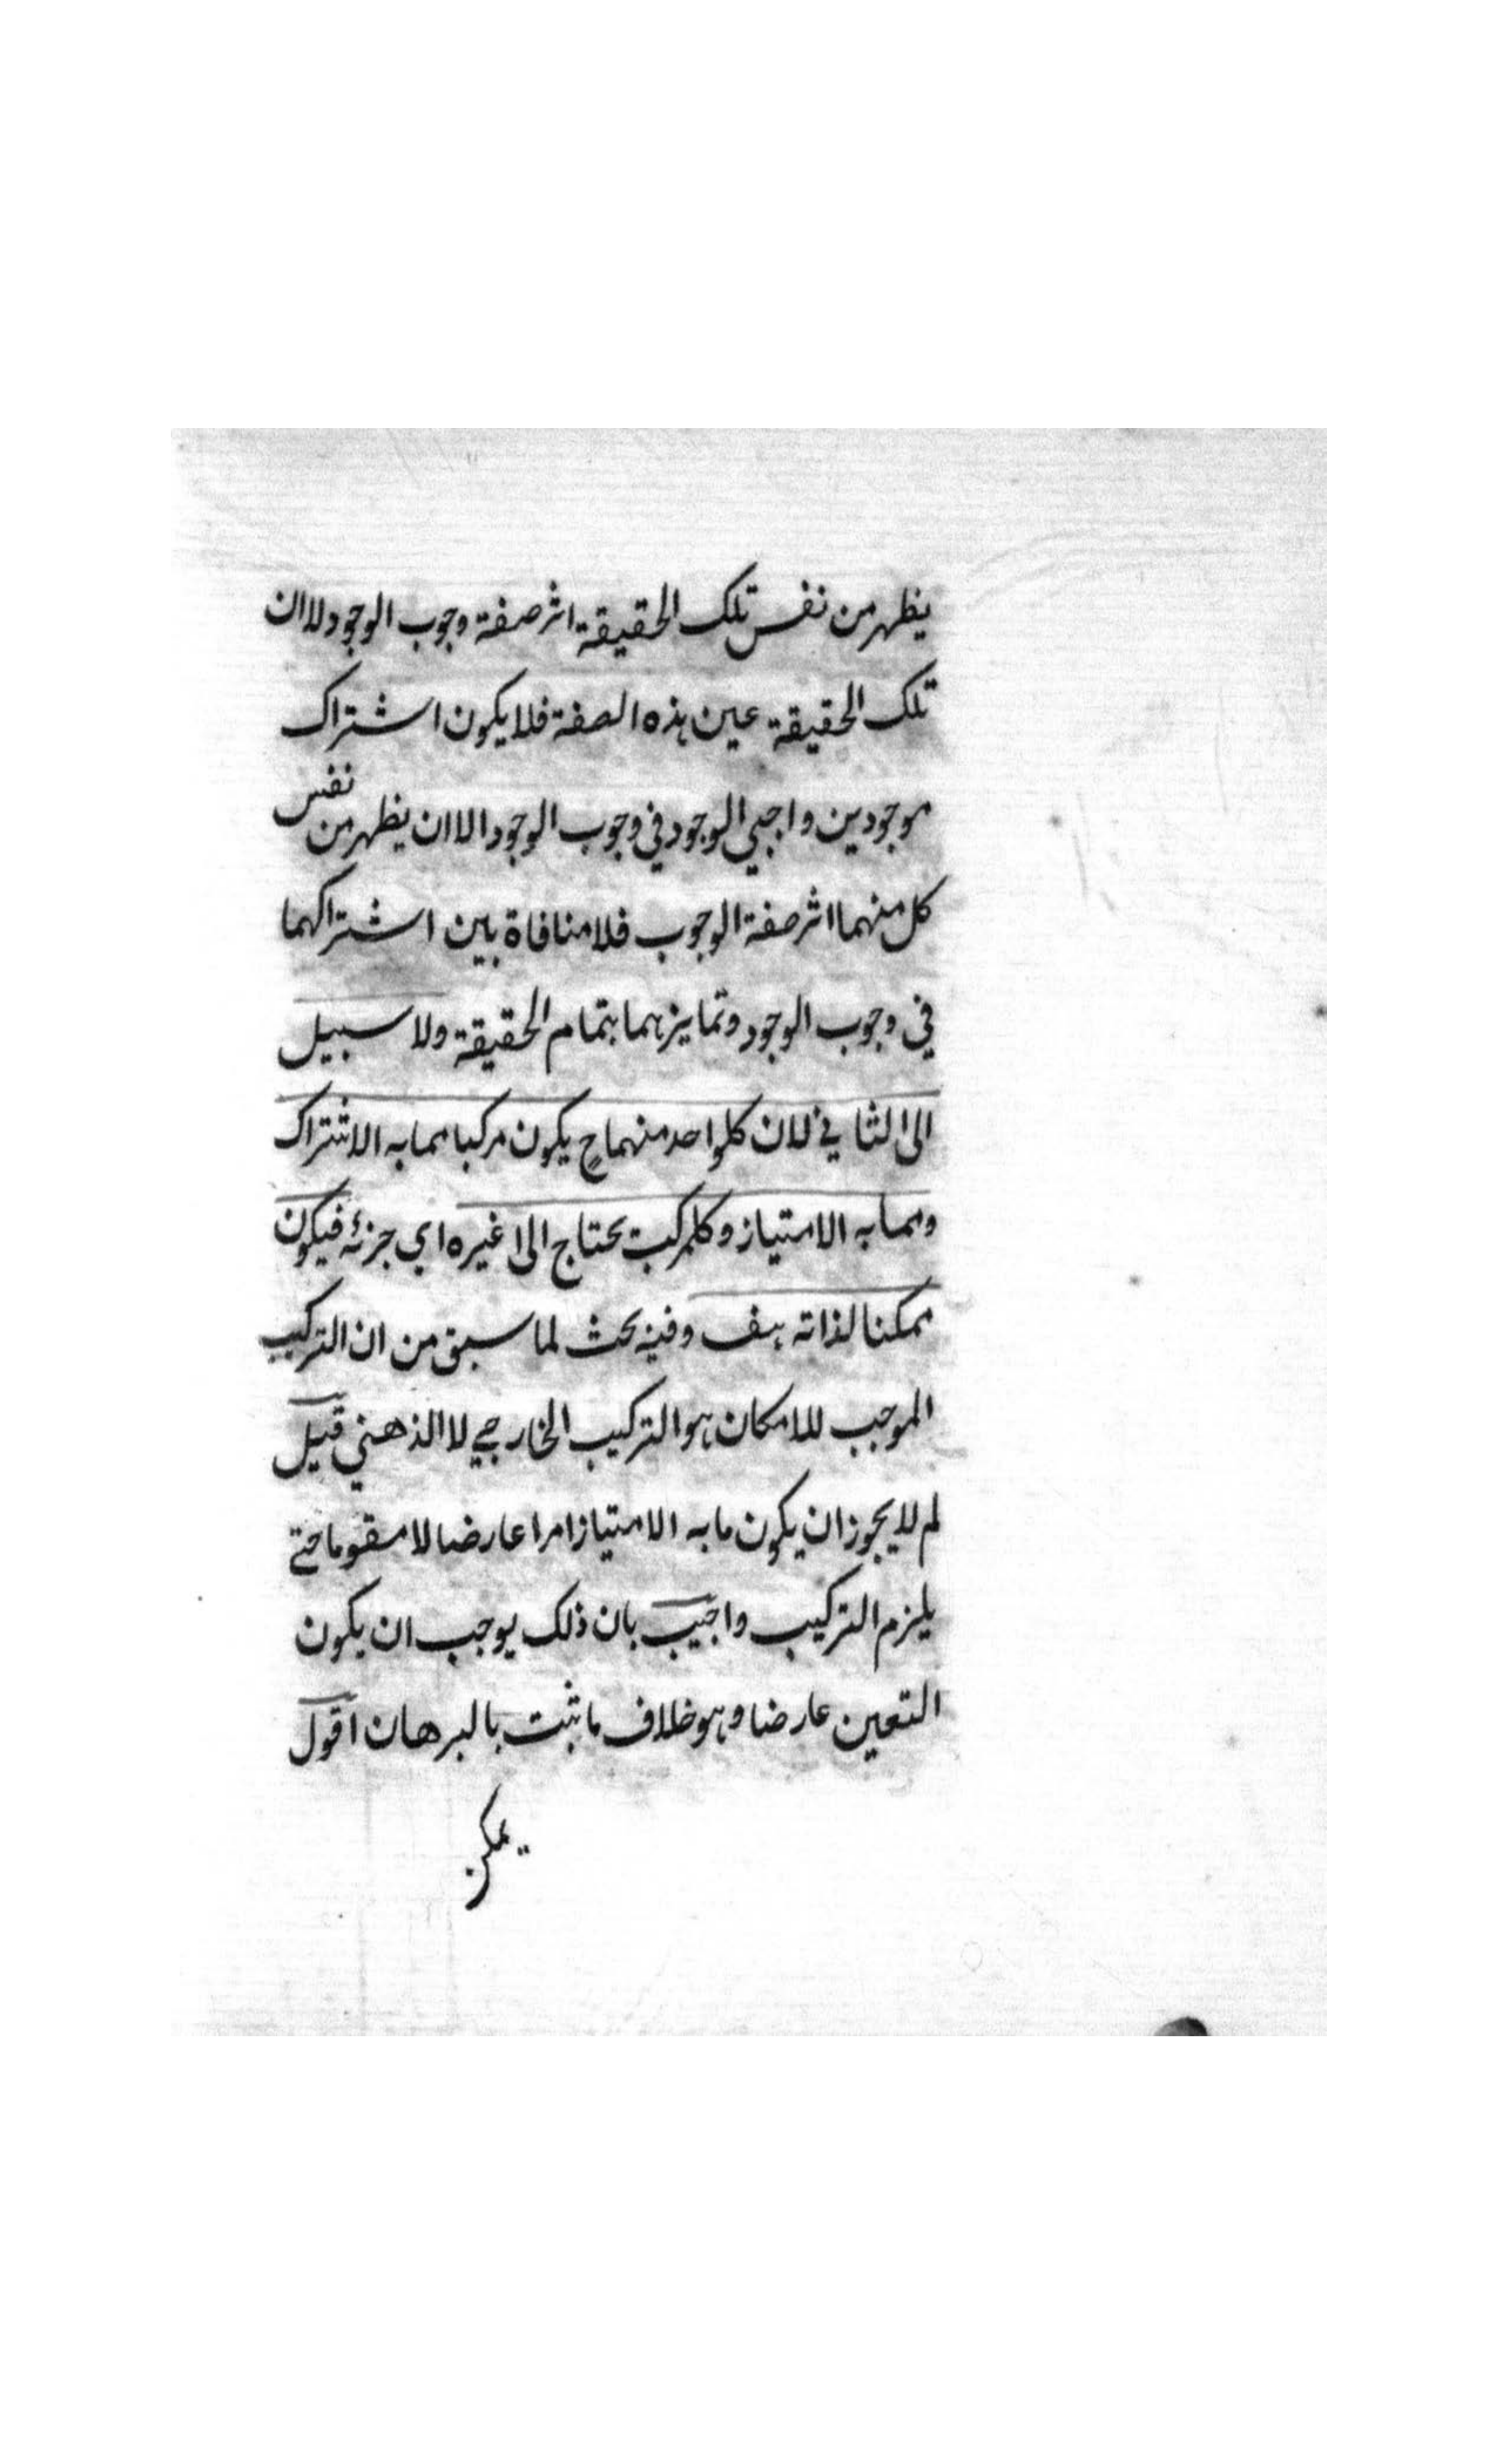 يظهر من نفس تلك الحقيقة اثر صفة وجوب الوجود لا ان
تلك الحقيقة عين هذه الصفة فلا يكون اشتراك
موجودين واجبي الوجود في وجوب الوجود الا ان يظهر من نفس
كل منهما اثر صفة الوجوب فلا منافاة بين اشتراكهما
في وجوب الوجود وتمايزهما بتمام الحقيقة ولا سبيل
الى الثاني لان كلواحد منهما ح يكون مركبا مما به الاشتراك
ومما به الامتياز وكلمركب يحتاج الى غيره اي جزئه فيكون
ممكنا لذاته هف وفيه بحث لما سبق من ان التركيب
الموجب للامكان هو التركيب الخارجي لا الذهني قيل
لم لا يجوز ان يكون ما به الامتياز امرا عارضا لا مقوما حتى
يلزم التركيب واجيب بان ذلك يوجب ان يكون
التعين عارضا وهو خلاف ما ثبت بالبرهان اقول
يمكن